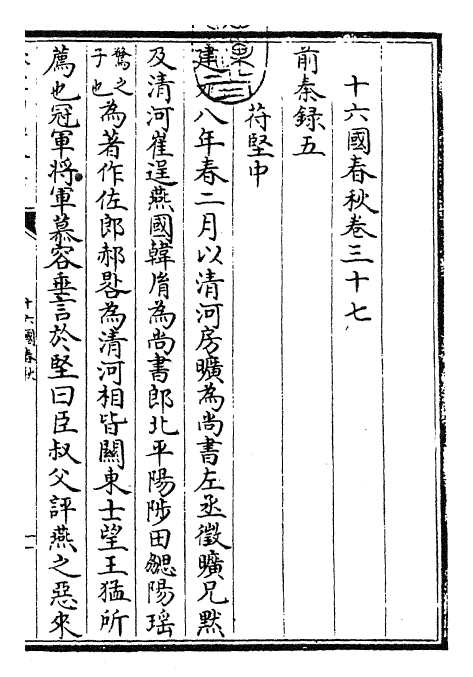 十六國春秋卷三十七
前秦録五
苻堅中
建元八年春二月以清河房曠為尚書左丞徵曠兄默
及清河崔逞燕國韓胤為尚書郎北平陽陟田勰陽瑶
騖之子也為著作佐郎郝畧為清河相皆關東士望王猛所
薦也冠軍將軍慕容垂言於堅曰臣叔父評燕之惡來
十六國春秋
一